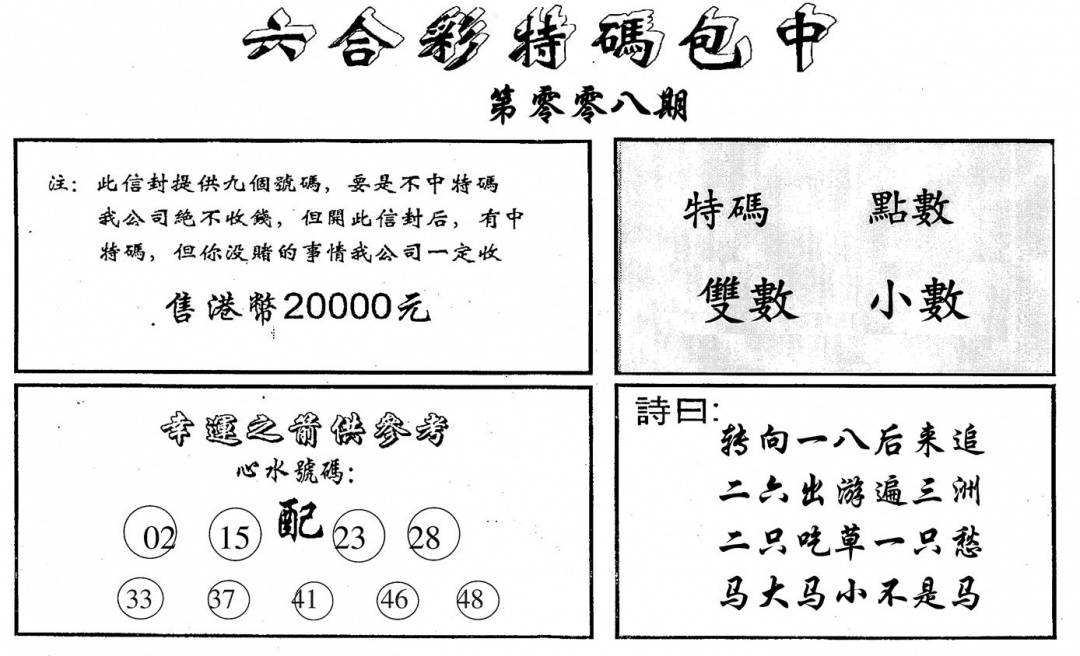 六合彩特碼包中
第零零八期
注：此信封提供九個號碼，要是不中特碼
我公司絕不收錢，但開此信封后，有中
特碼，但你没賭的事情我公司一定收
售港幣20000元
特碼 點數
雙數 小數
幸運之箭供參考
心水號碼：
02 15 配 23 28
33 37 41 46 48
詩曰：
转向一八后来追
二六出游遍三洲
二只吃草一只愁
马大马小不是马